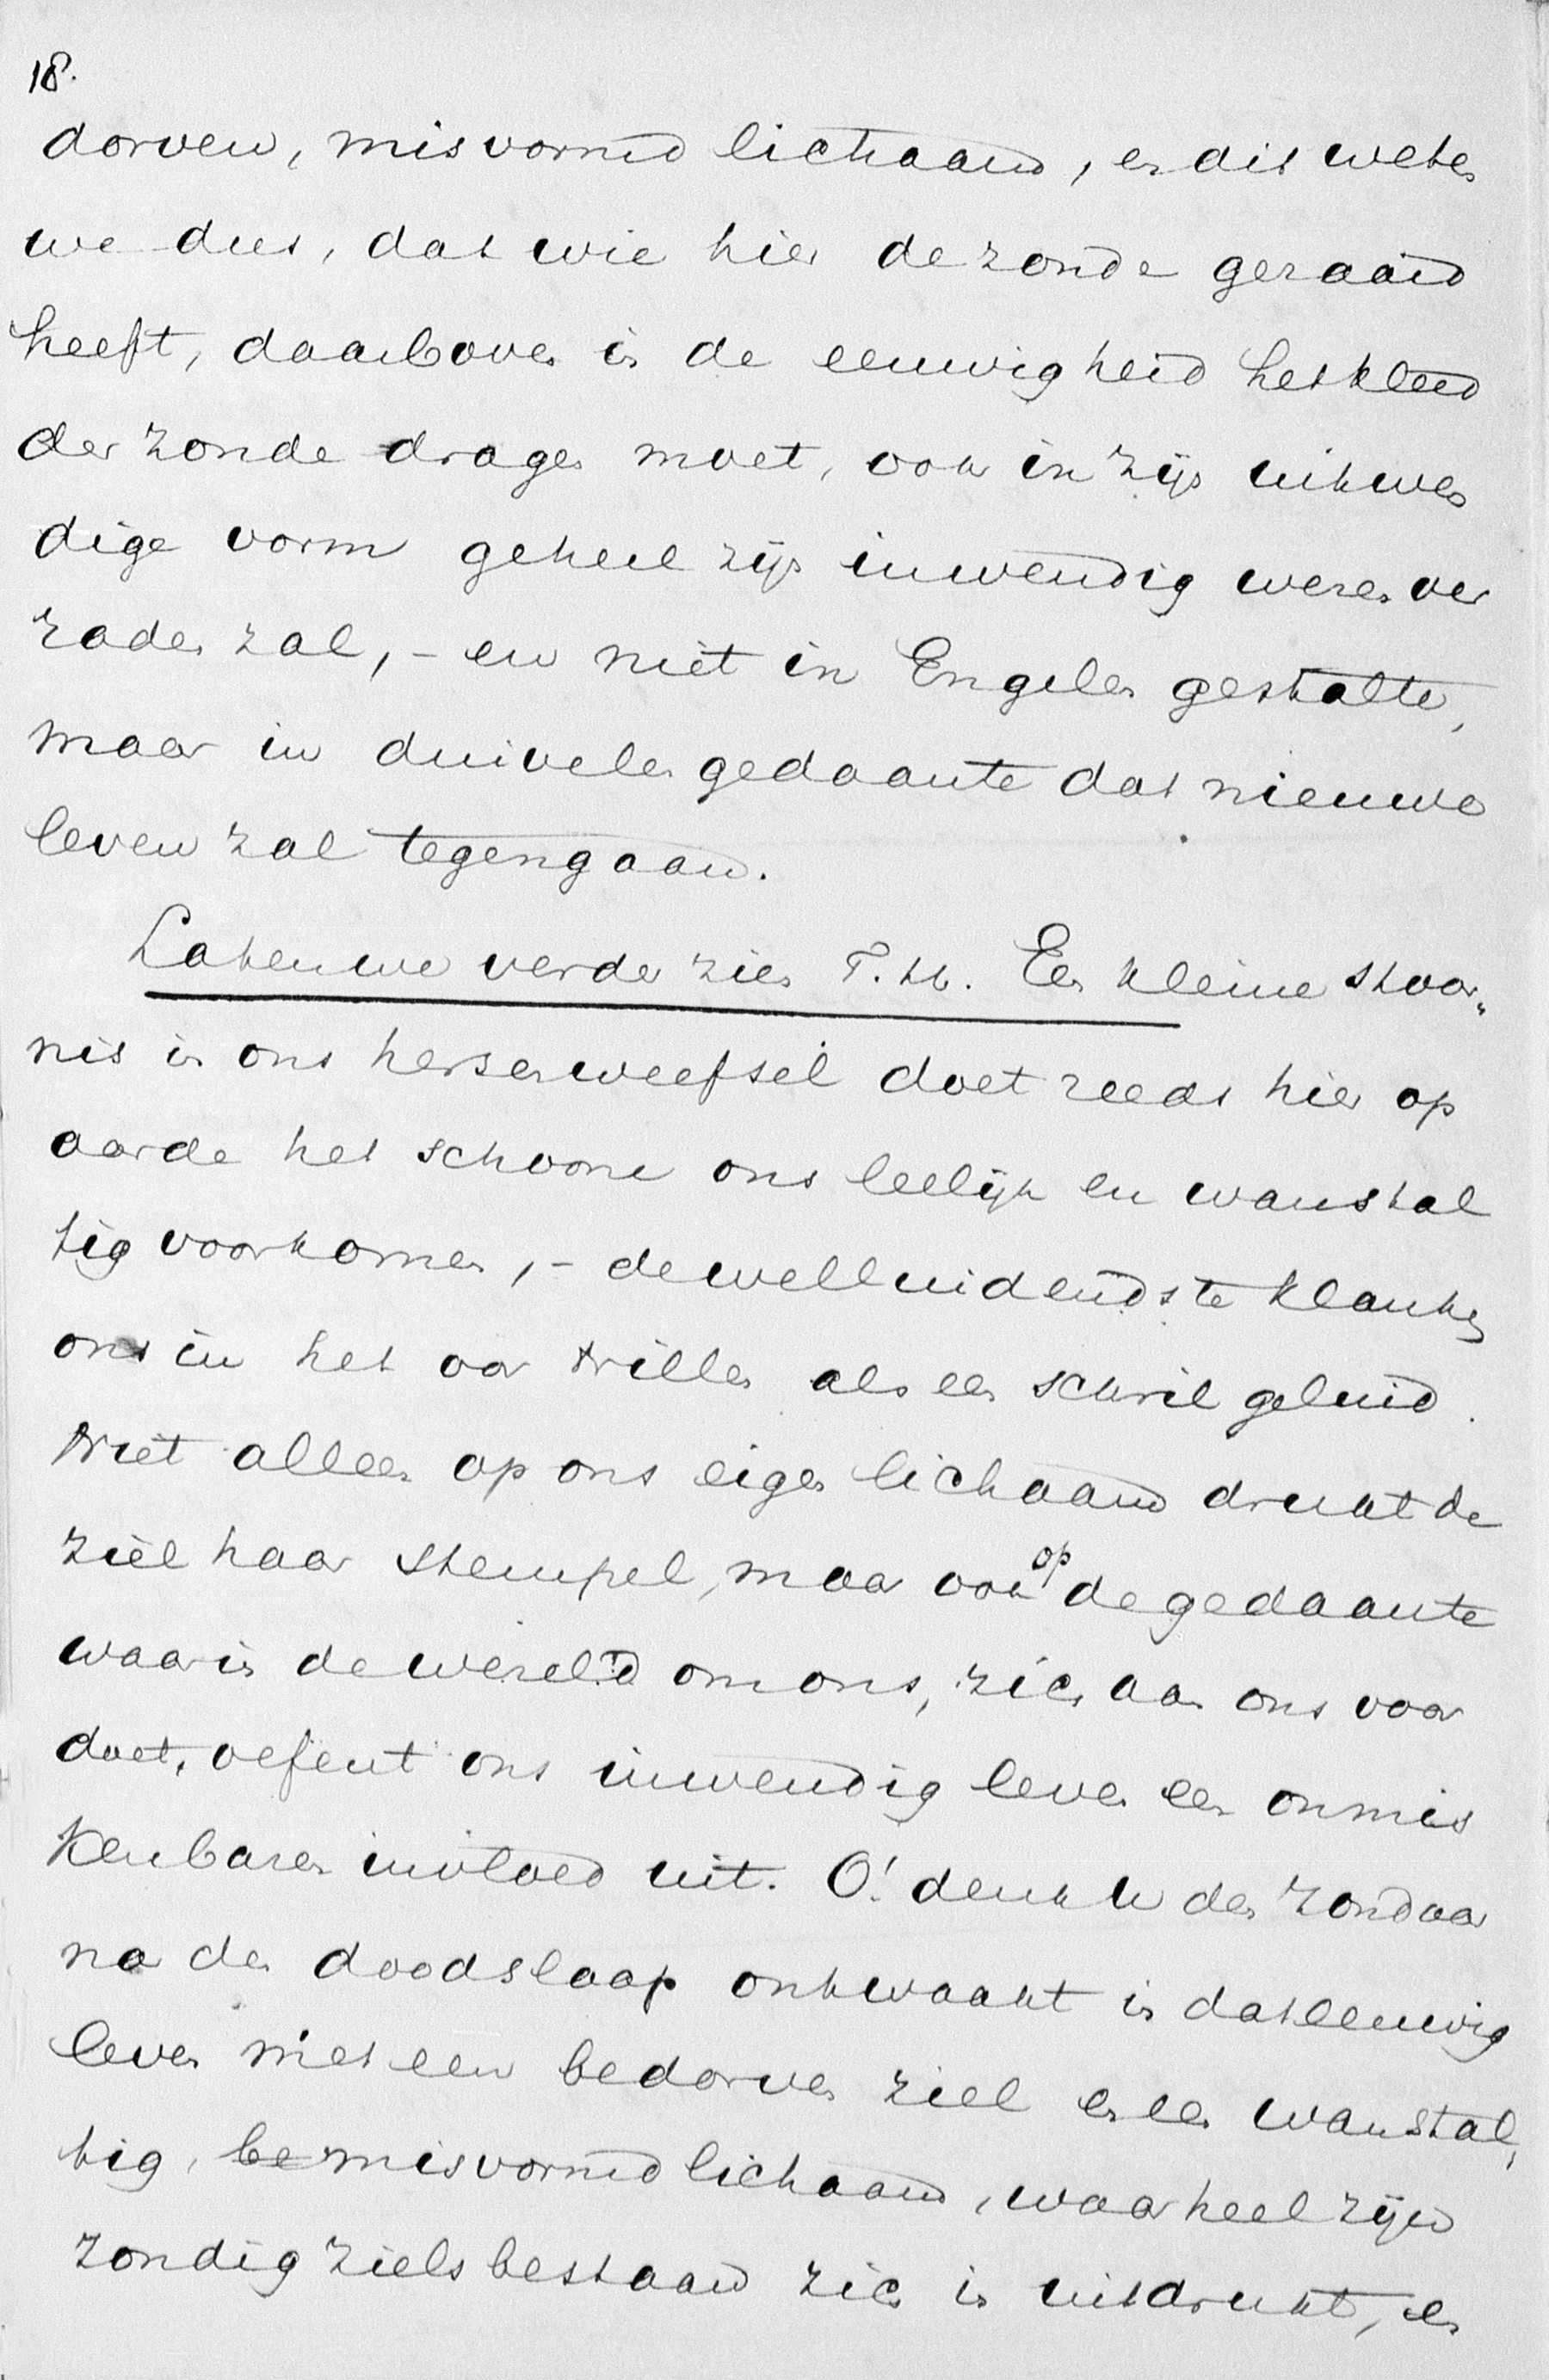 18.
dorven, misvormd lichaam, en dit weten
we dus, dat wie hier de zonde gezaaid
heeft, daarboven in de eeuwigheid het kleed
der zonde dragen moet, ook in zijn uitwen
dige vorm geheel zijn inwendig wezen ver
raden zal, - en niet in Engelen gestalte,
maar in duivelen gedaante dat nieuwe
leven zal tegengaan.
Laten we verder zien T. H. Een kleine stoor„
nis in ons hersenweefsel doet reeds hier op
aarde het schoone ons leelijk en wanstal
tig voorkomen, - de welluidendste klanken
ons in het oor trillen als een schril geluid.
Niet alleen op ons eigen lichaam drukt de
ziel haar stempel, maar ook op de gedaante
waarin de wereld om ons, zich aan ons voor
doet, oefent ons inwendig leven een onmis
kenbaren invloed uit. O! denk U den zondaar
na den doodslaap ontwaakt in dat eeuwig
leven met een bedorven ziel en een wanstal„
tig, be misvormd lichaam, waar heel zijn
zondig zielsbestaan zich in uitdrukt, en